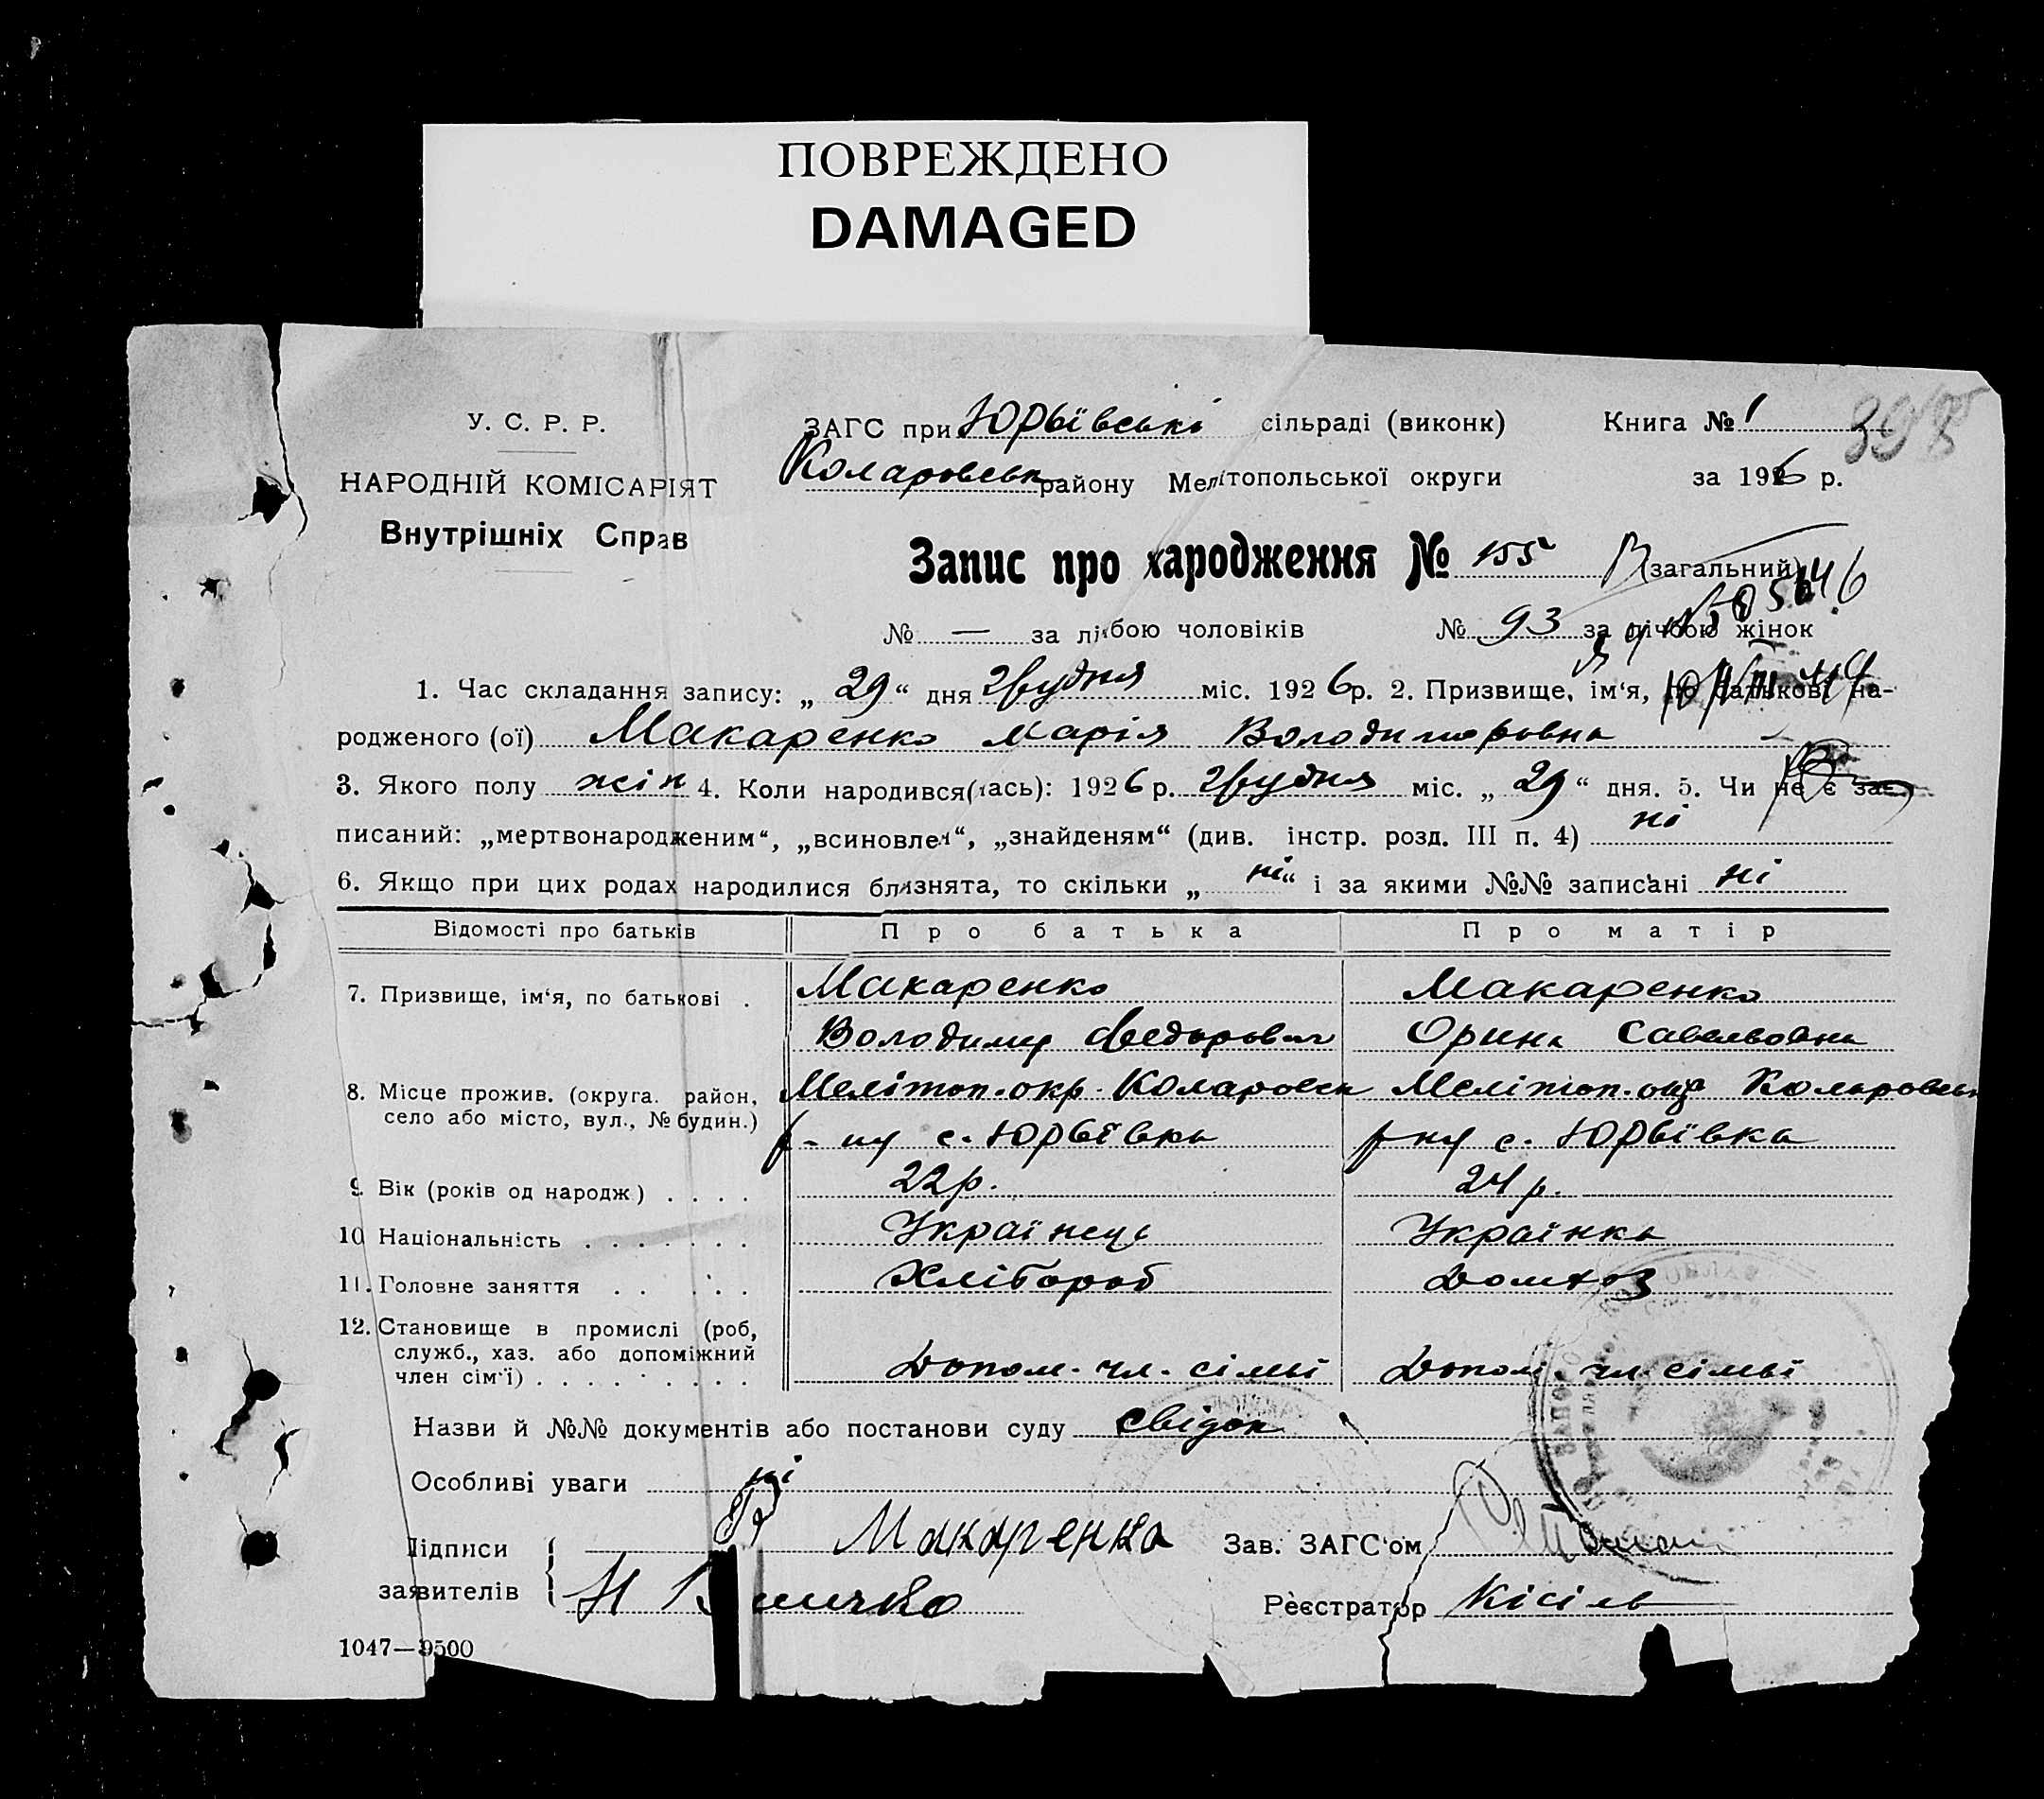 ПОВРЕЖДЕНО
DAMAGED
У. С. Р. Р.
НАРОДНІЙ КОМІСАРІЯТ
Внутрішніх Справ
ЗАГС при Юрьївські сільраді (виконк) Книга № 1
398
Коларовськ району Мелітопольської округи за 1926 р.
Запис про народження № 155 (загальний)
№ — за лічбою чоловіків № 93 за лічбою жінок
1. Час складання запису: „ 29 “ дня Грудня міс. 1926 р. 2. Призвище, ім‘я, по батькові на-
родженого (ої) Макаренко Марія Володимировна
3. Якого полу жін 4. Коли народився(лась): 1926 р. Грудня міс. „ 29 “ дня. 5. Чи не є за-
писаний: „мертвонародженим“, „всиновлен“, „знайденям“ (див. інстр. розд. III п. 4) ні
6. Якщо при цих родах народилися близнята, то скільки „ ні “ і за якими №№ записані ні
Відомості про батьків Про батька Про матір
7. Призвище, ім‘я, по батькові . Макаренко Макаренко
Володимир Федорович Орина Савельовна
8. Місце прожив. (округа. район, Мелітоп. окр. Коларовськ Мелітоп. окр Коларовськ
село або місто, вул., № будин.) р-ну с. Юрьївка р-ну с. Юрьївка
9. Вік (років од народж) . . . . 22 р. 24 р.
10 Національність . . . . . . . Українець Українка
11. Головне заняття . . . . . Хлібороб Домхоз
12. Становище в промислі (роб,
служб., хаз. або допоміжний
член сім‘ї) . . . . . . . . . Допом. чл. сімьї Допом. чл. сімьї
Назви й №№ документів або постанови суду свідок
Особливі уваги ні
Підписи Макаренко Зав. ЗАГС‘ом
заявителів Реєстратор Кісіль
1047—9500